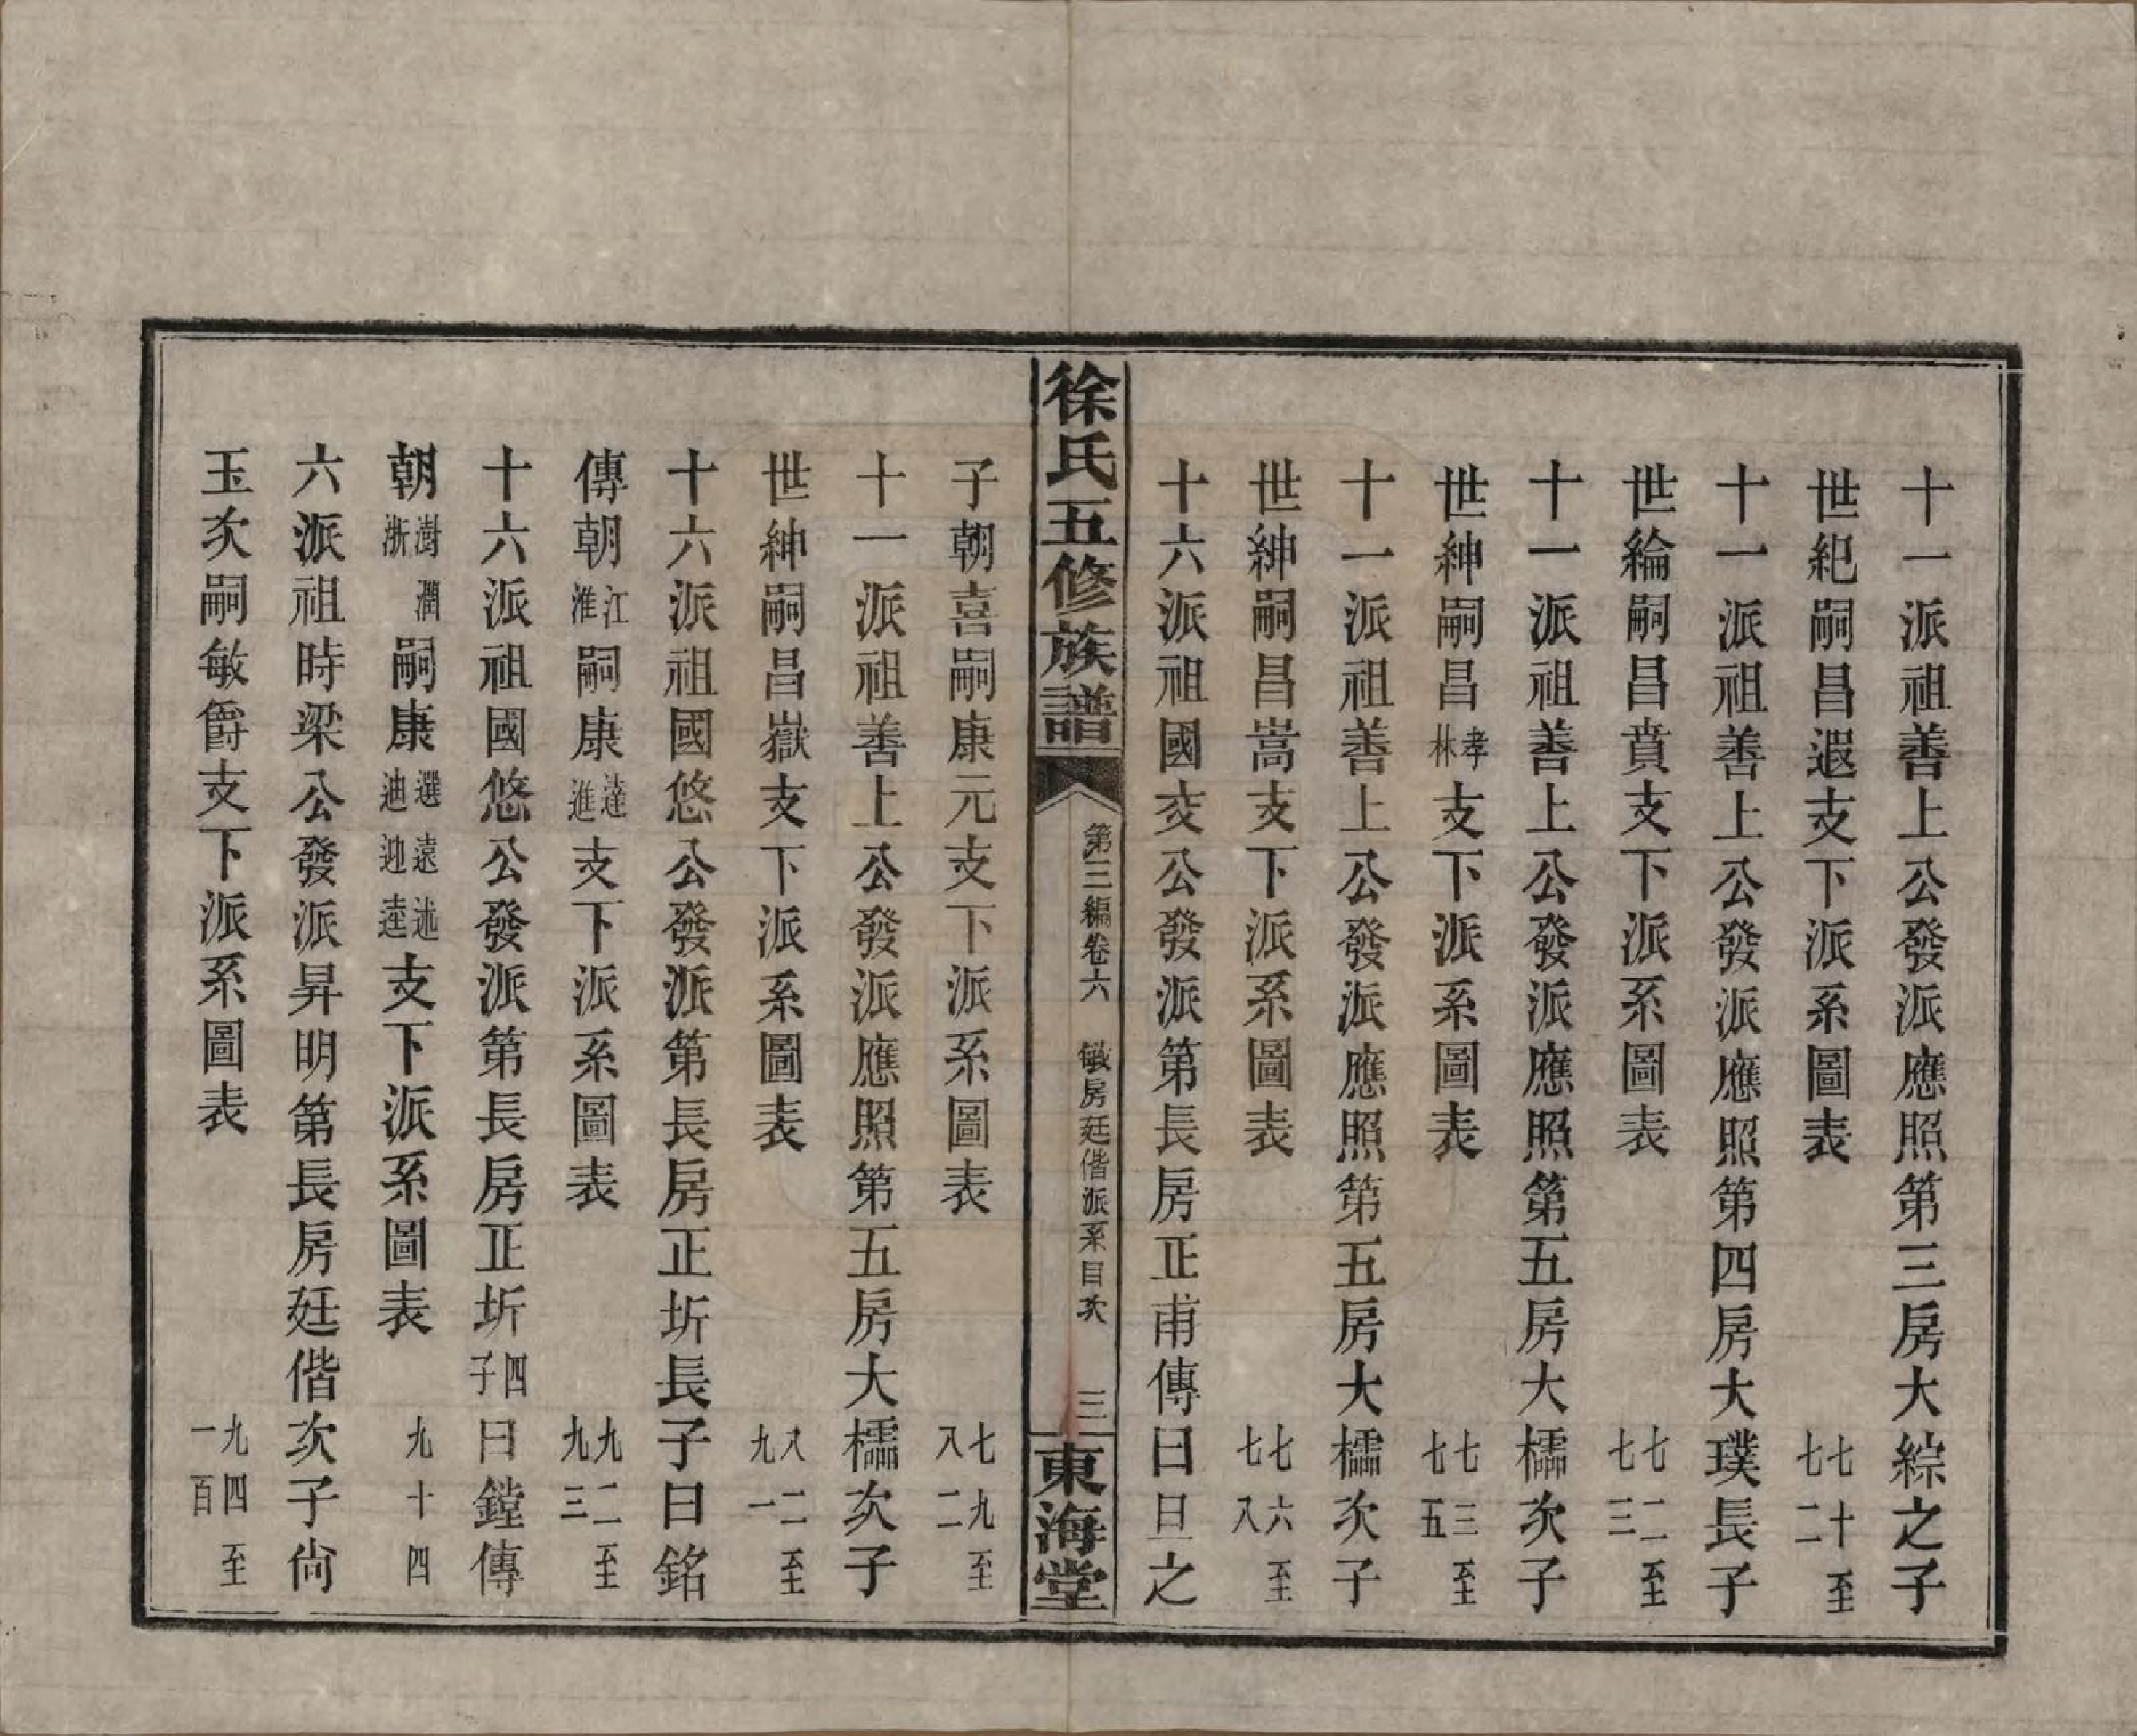 十一派祖善上公發派應照第三房大綜之子
世紀嗣昌遐支下派系圖表 七十至七二
十一派祖善上公發派應照第四房大璞長子
世綸嗣昌賁支下派系圖表 七二至七三
十一派祖善上公發派應照第五房大檽次子
世紳嗣昌孝林支下派系圖表 七三至七五
十一派祖善上公發派應照第五房大檽次子
世紳嗣昌嵩支下派系圖表 七六至七八
十六派祖國交公發派第長房正甫傳曰旦之
徐氏五修族譜 第三編卷六 敏房廷偕派系目次 三 東海堂
子朝喜嗣康元支下派系圖表 七九至八二
十一派祖善上公發派應照第五房大檽次子
世紳嗣昌嶽支下派系圖表 八二至九一
十六派祖國悠公發派第長房正圻長子曰銘
傳朝江淮嗣康達進支下派系圖表 九二至九三
十六派祖國悠公發派第長房正圻四子曰鏜傳
朝澍浙潤嗣康選迪遠迎述逵支下派系圖表 九十四
六派祖時梁公發派昇明第長房廷偕次子尚
玉次嗣敏爵支下派系圖表 九四至一百